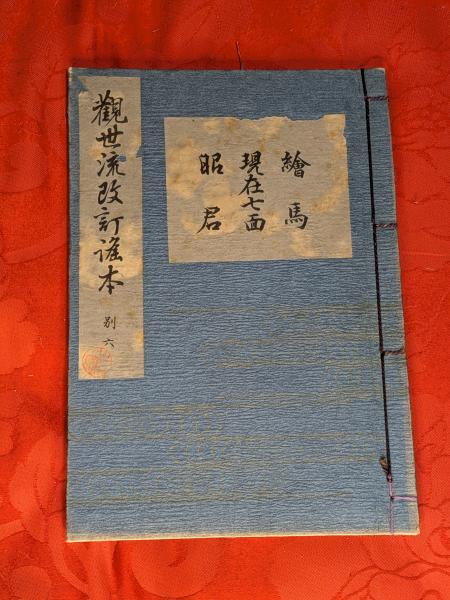 繪馬
現在七面
昭君
觀世流改訂謠本
別六